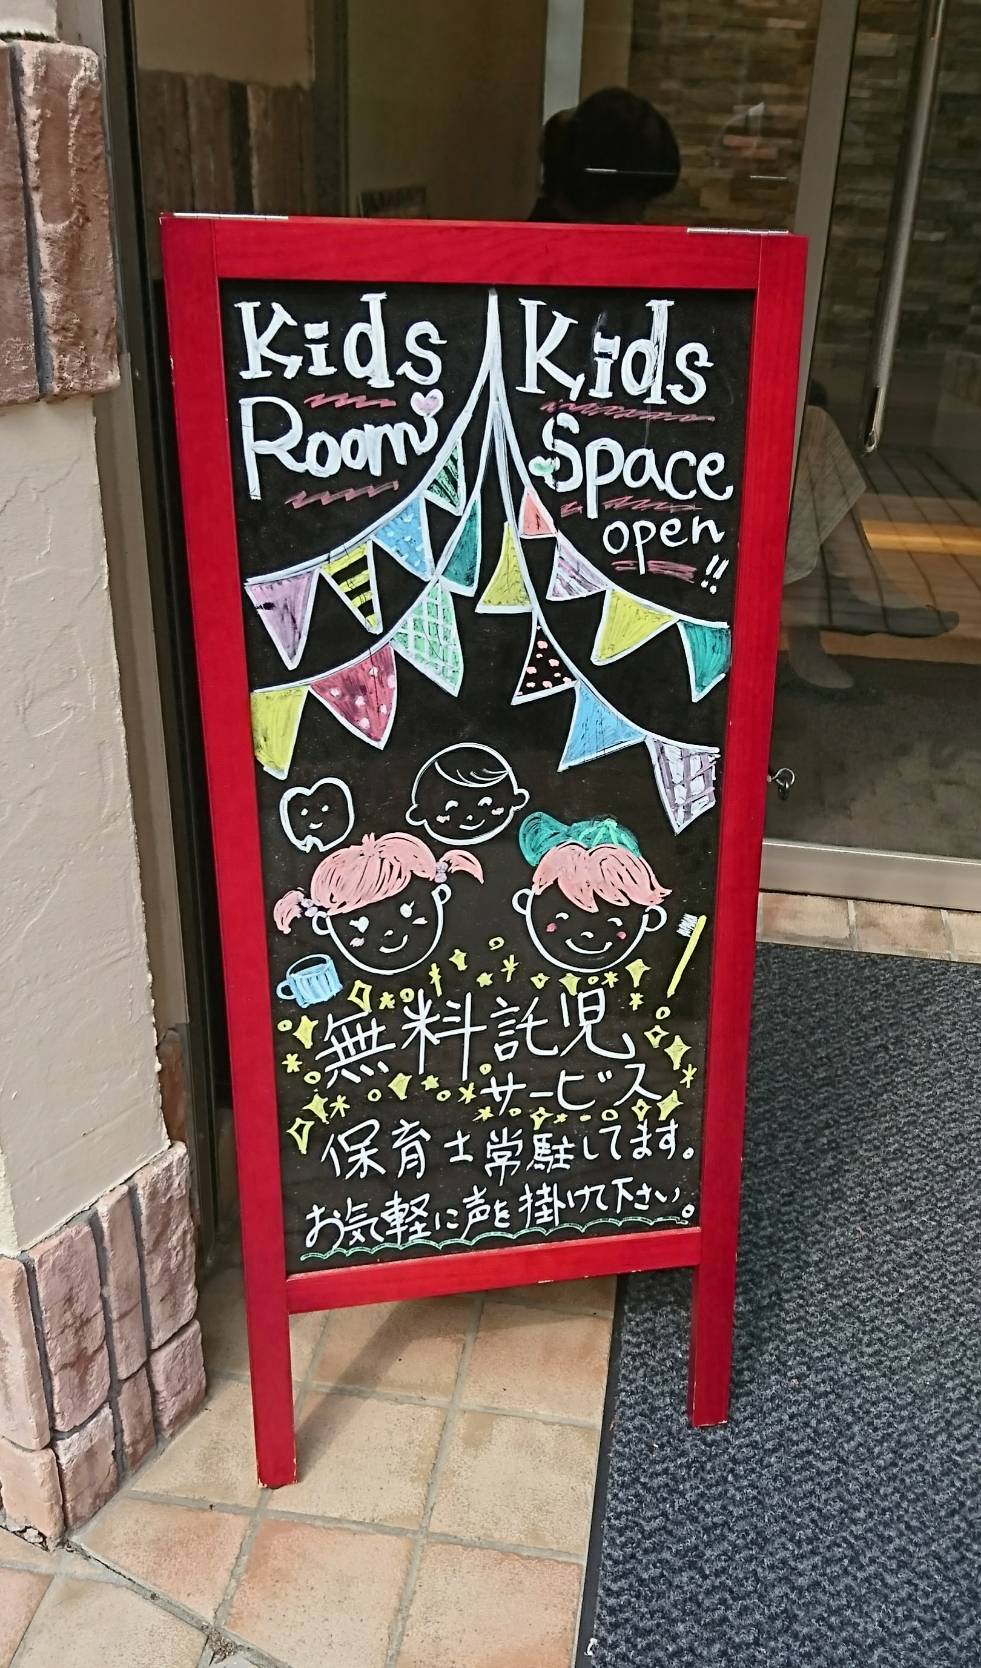 Kids
Room
Kids
Space
open!!
無料託児
サービス
保育士常駐してます。
お気軽に声を掛けて下さい。